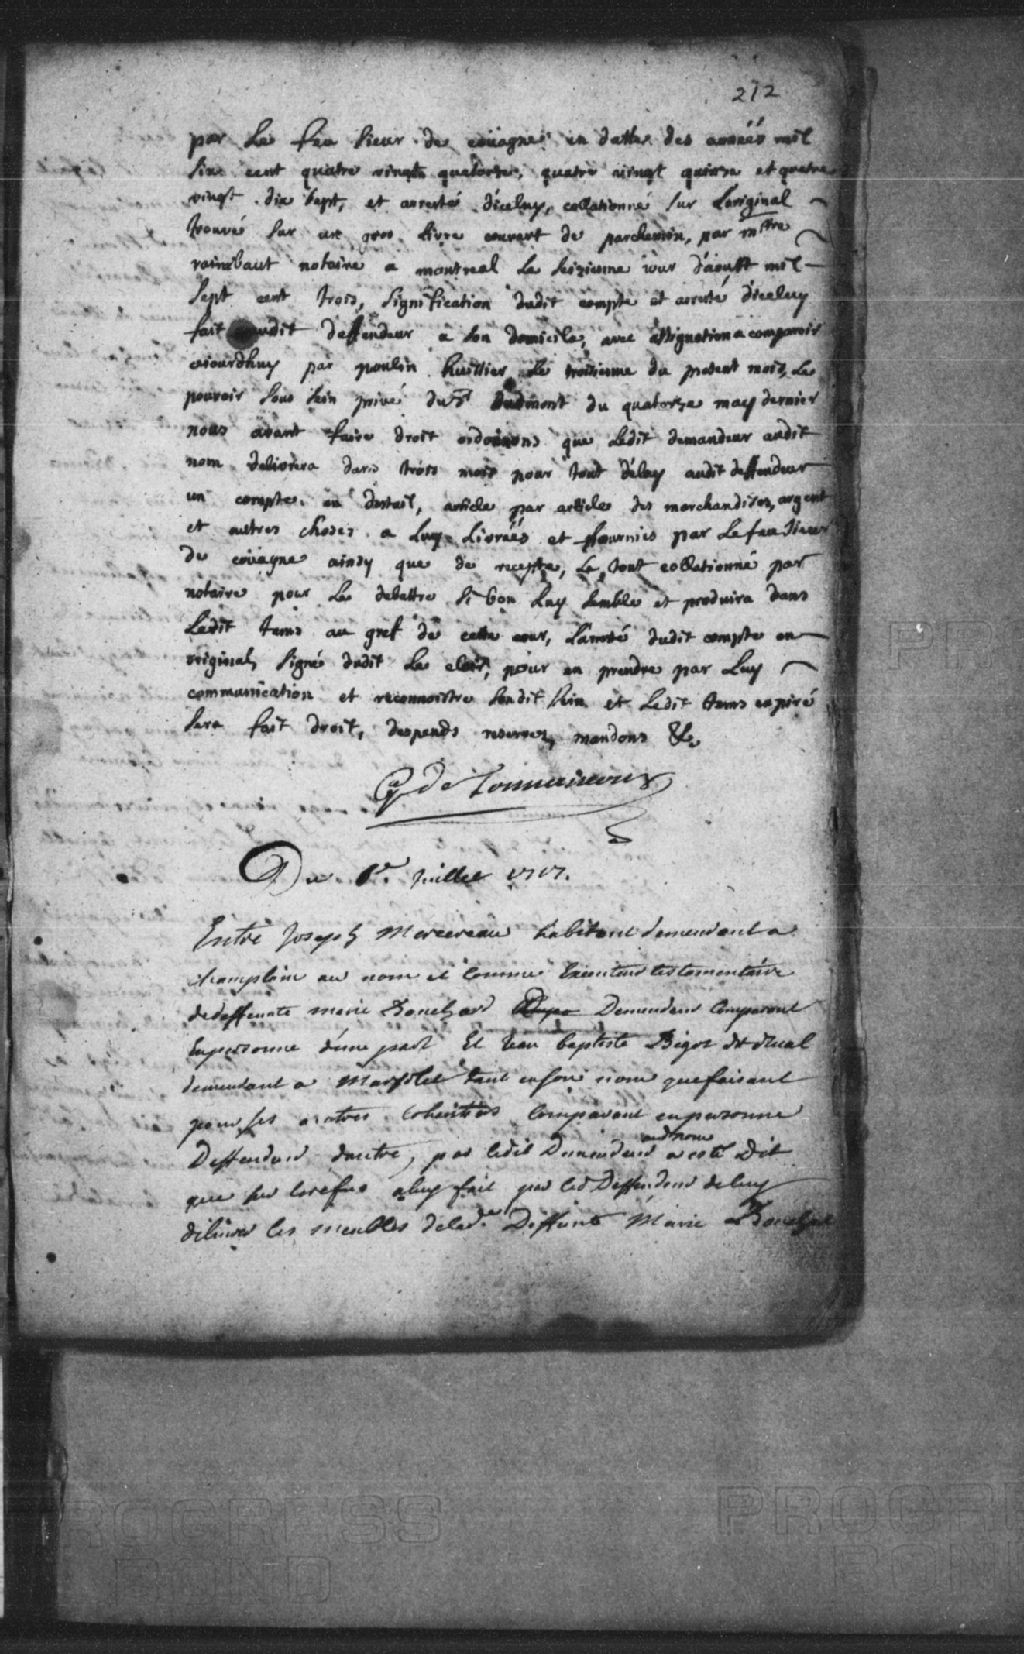 212
par Le feu Sieur de couagne en datte des années mil
six cent quatre vingts quatorze, quatre vingt quinze et quatre
vingt dix sept, et arresté d'iceluy, collationné sur Loriginal
trouvé sur un gros Livre couvert de parchemin, par mttre
raimbaut notaire a montreal Le seizieme jour d'aoust mil
sept cent trois, signification dudit compte et arresté d'iceluy
fait audit deffendeur a son domicile, avec assignation a comparoir
aiourdhuy par poulin huissier Le troisieme du present mois, Le
pouvoir sous sein privé du Sr du quatorze may dernier
nous avant faire droit ordonnons que Ledit demandeur audit
nom delivrera dans trois mois pour tout délay audit deffendeur
un compte en destail, article par articles des marchandises, argent
et autres choses a Luy Livrées et fournies par Le feu Sieur
de couagne ainsy que de recepte, Le tout collationné par
notaire pour Le debattre si bon Luy semble et produira dans
Ledit tems au gref de cette cour, L'arresté dudit compte en
original, signé dudit Le clerc, pour en prendre par Luy
communication et reconnoistre sondit sein et Ledit tems expiré
sera fait droit, despends reservez, mandons &c
G de Tonnancour
Du 6e. Juillet 1717.
Entre Joseph Mercereau habitant demeurant a
champlain au nom et comme Executeur testamentaire
de deffunte marie Boucher Demandeur Comparant
en personne d'une part Et Jean baptiste Bigot dt
demeurant a tant en son nom que faisant
pour ses autres Coheritiers Comparant en personne
Deffendeur dautre, par ledit Demandeur audt nom a esté Dit
que sur le refus a luy fait par led. Deffendeur de luy
délivrer les meubles de lade. Deffunte Marie Boucher